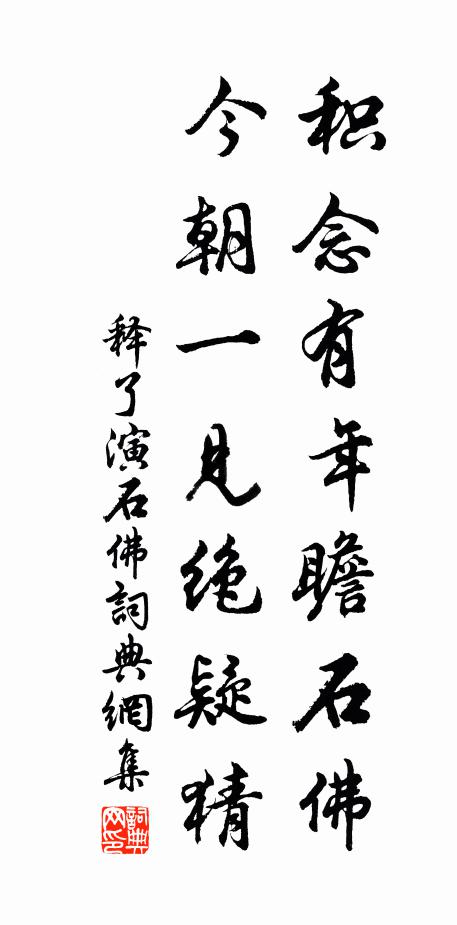 积念有年瞻石佛
今朝一见绝疑猜
释了演石佛詞典網集
詞典网印